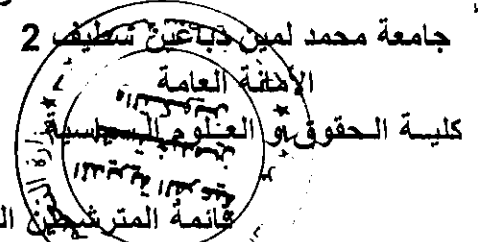 جامعة محمد لمين دباغين سطيف 2
الأمانة العامة
كلية الحقوق و العلوم السياسية
قائمة المترشحين